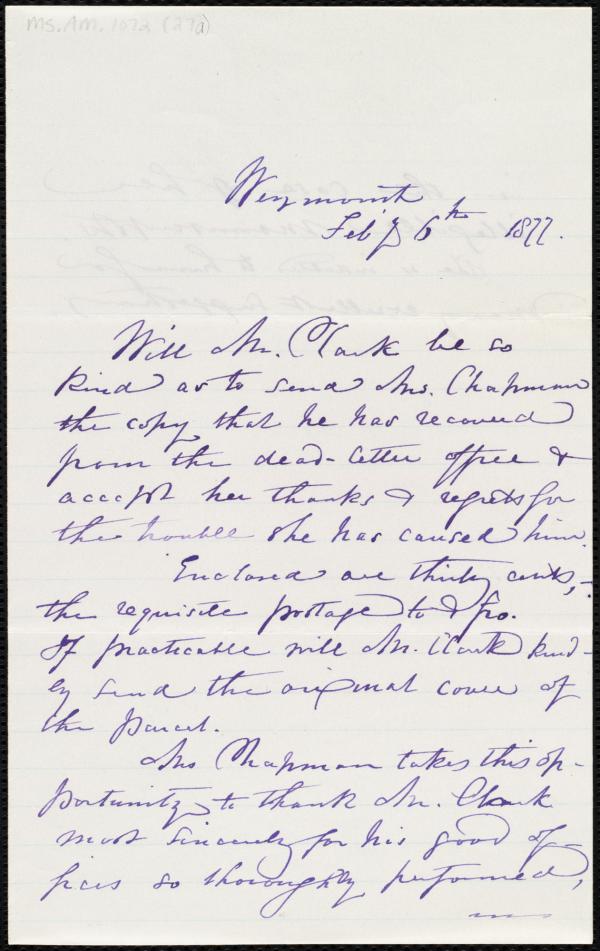 Ms. Am. 1072 (27a)
Weymouth
Feb'y 6th 1877.
Will Mr. Clark be so
kind as to send Mrs. Chapman
the copy that he has recovered
from the dead-letter office &
accept her thanks & regrets for
the trouble she has caused him.
Enclosed are thirty cents,-
the requisite postage to & fro.
If practicable will Mr. Clark kind-
ly send the original cover of
the parcel.
Mrs Chapman takes this op-
portunity to thank Mr. Clark
most sincerely for his good of-
fices so thoroughly performed,